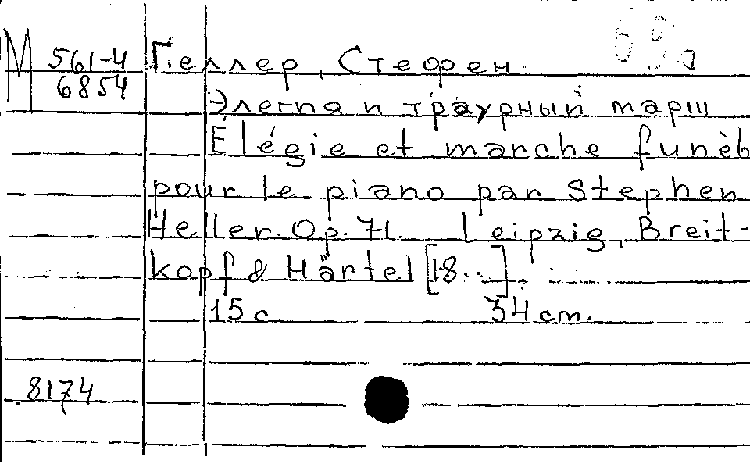 М 561-4 Геллер, Стефен.
6854
Элегия и траурный марш
Élégie et marche funèb
pour le piano par Stephen
Heller. Op. 71. Leipzig, Breit-
kopf & Härtel [18...].
15 с 34 cm.
8174